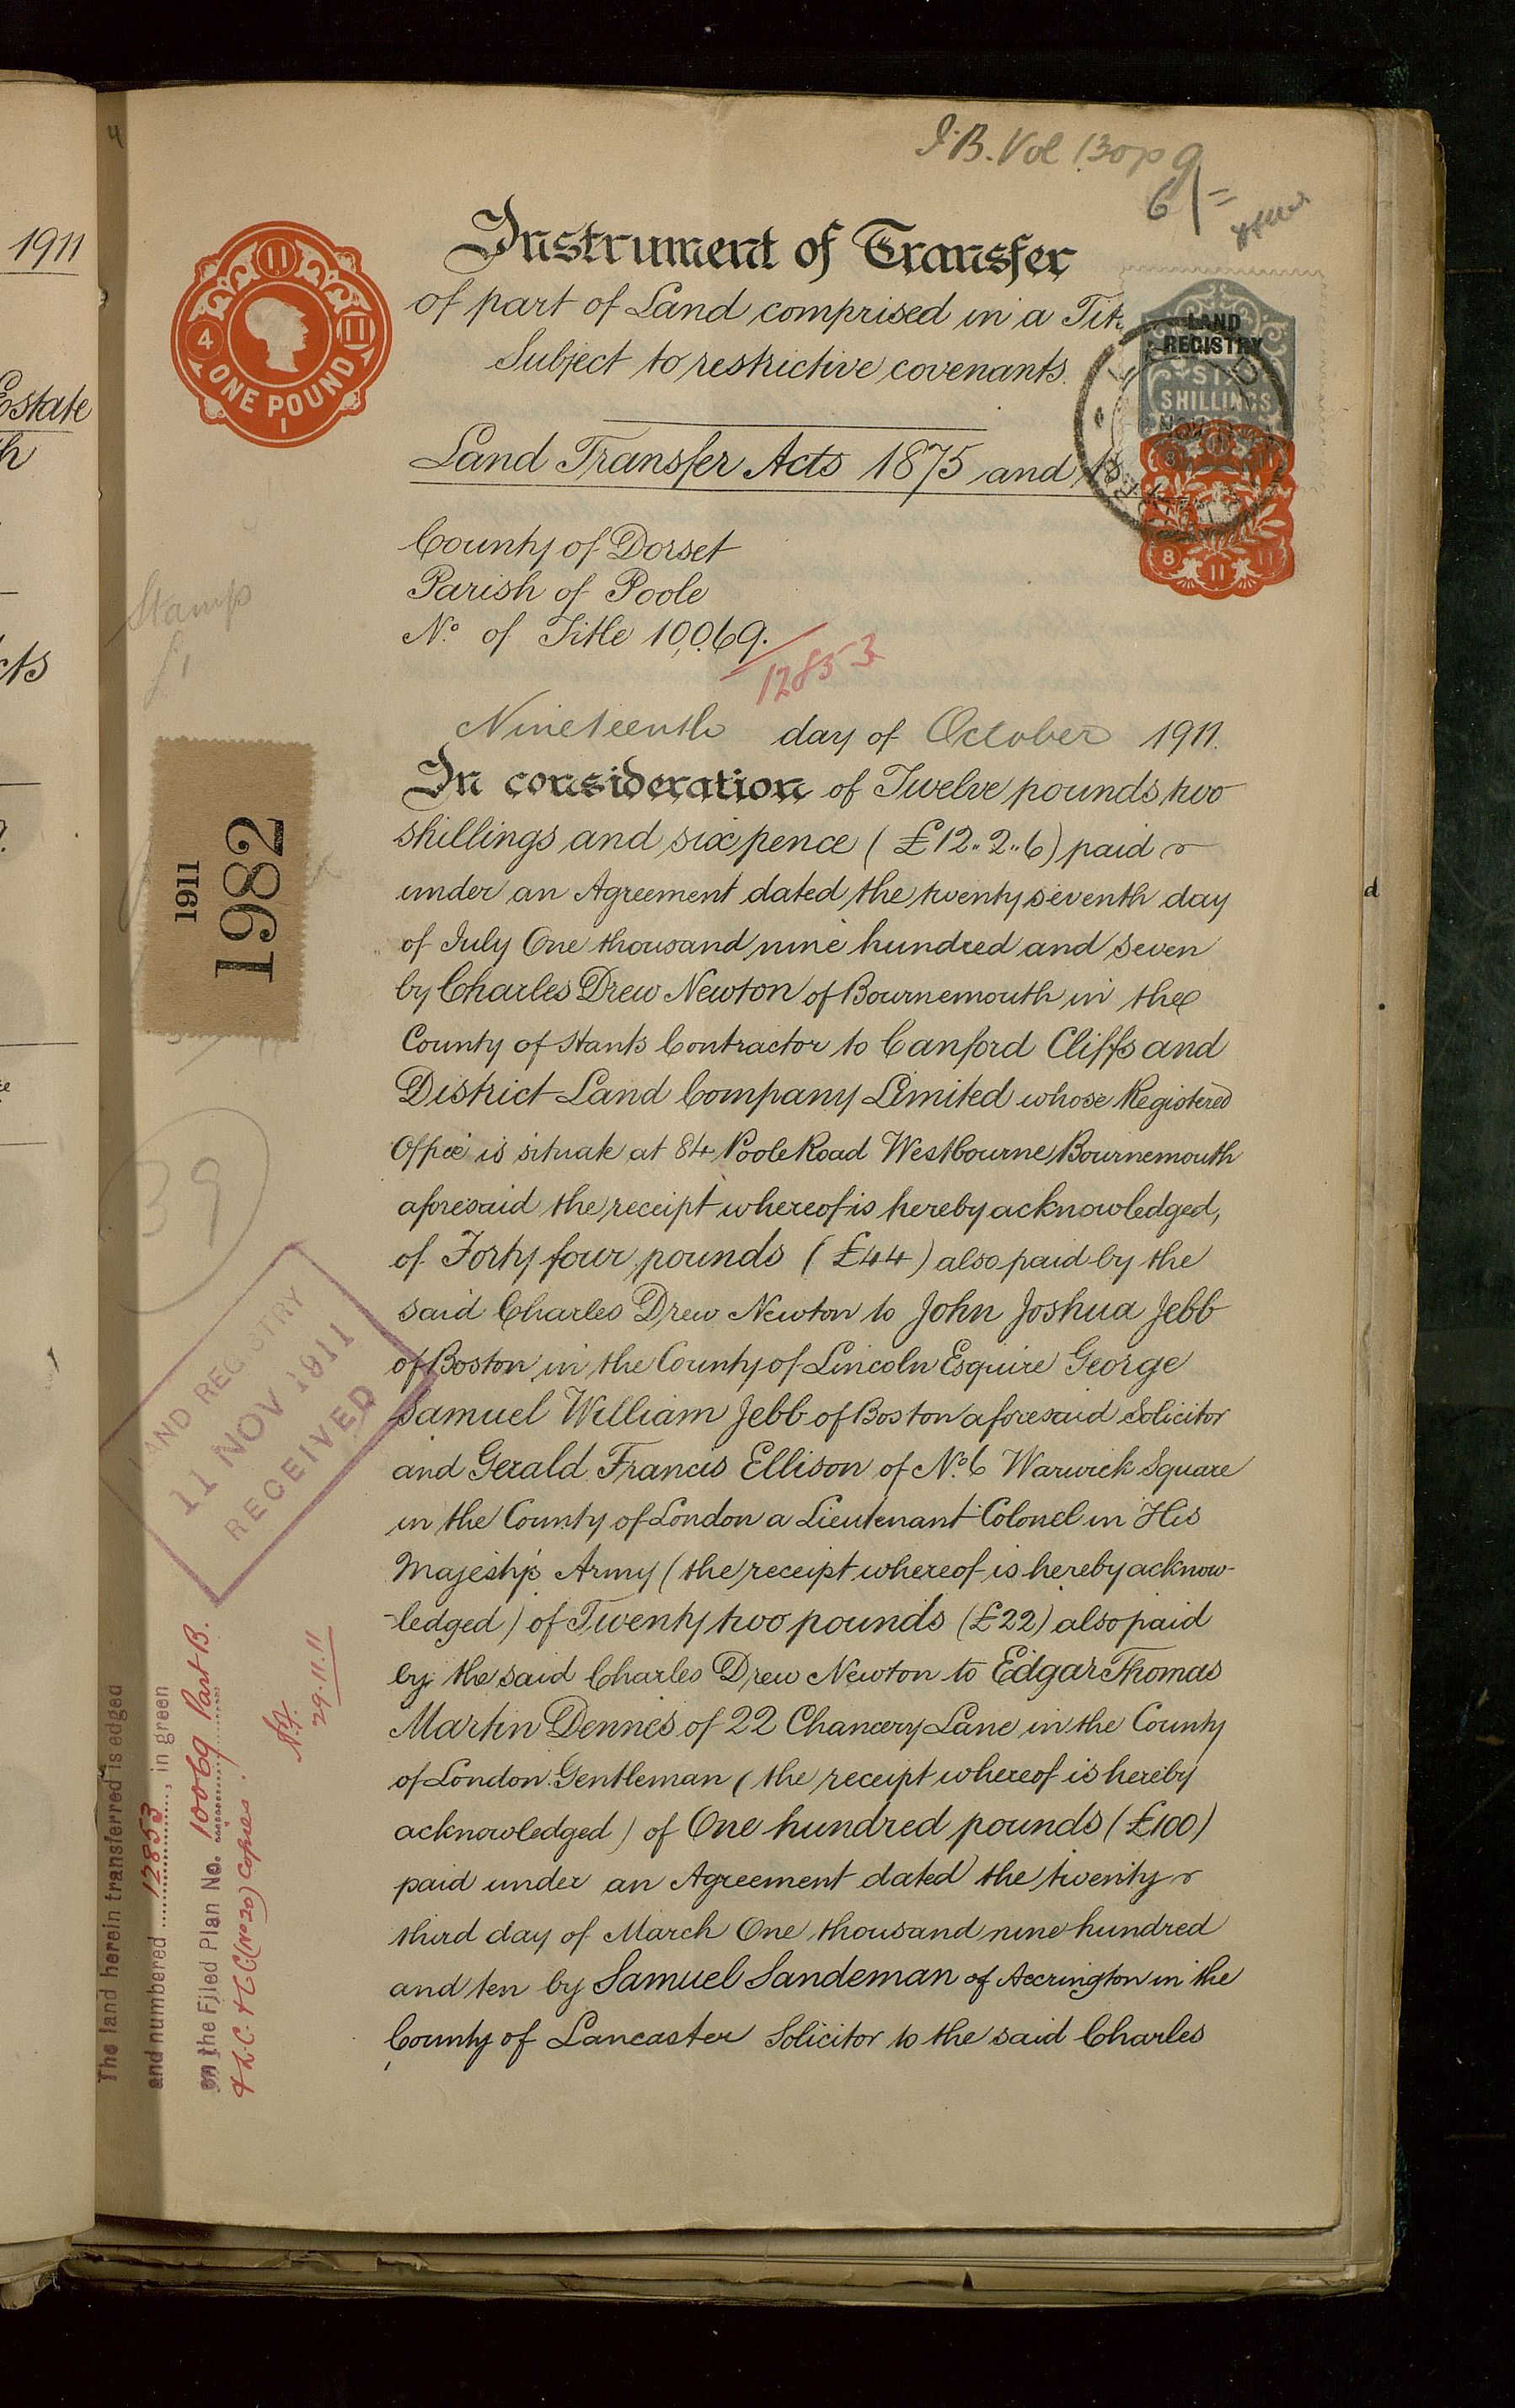 1911
Estate
4
I.B. Vol 130 p 9
6/=
Instrument of Transfer
of part of Land comprised in a Tit
Subject to restrictive covenants.
Land Transfer Acts 1875 and 18
11
4
11
ONE POUND
1
LAND
REGISTRY
SIX
SHILLINGS
NOV
8
11
11
8
11
11
County of Dorset
Parish of Poole
No. of Title 10,069.
12853
Stamp
£1
Nineteenth day of October 1911.
In consideration of Twelve pounds two
shillings and six pence (£12..2..6) paid
under an Agreement dated the twenty seventh day
of July One thousand nine hundred and seven
by Charles Drew Newton of Bournemouth in the
County of Hants Contractor to Canford Cliffs and
District Land Company Limited whose Registered
Office is situate at 84 Poole Road Westbourne Bournemouth
aforesaid the receipt whereof is hereby acknowledged,
of Forty four pounds (£44) also paid by the
said Charles Drew Newton to John Joshua Jebb
of Boston in the County of Lincoln Esquire George
Samuel William Jebb of Boston aforesaid Solicitor
and Gerald Francis Ellison of No. 6 Warwick Square
in the County of London a Lieutenant Colonel in His
Majesty's Army (the receipt whereof is hereby acknow-
-ledged) of Twenty two pounds (£22) also paid
by the said Charles Drew Newton to Edgar Thomas
Martin Dennes of 22 Chancery Lane in the County
of London Gentleman (the receipt whereof is hereby
acknowledged) of One hundred pounds (£100)
paid under an Agreement dated the twenty
third day of March One thousand nine hundred
and ten by Samuel Sandeman of Accrington in the
County of Lancaster Solicitor to the said Charles
1911
1982
39
LAND REGISTRY
11 NOV 1911
RECEIVED
The land herein transferred is edged
and numbered 12853, in green
on the Filed Plan No. 10069 Part B.
& L.C. & C.C. (No 20) Copies.
29.11.11
d